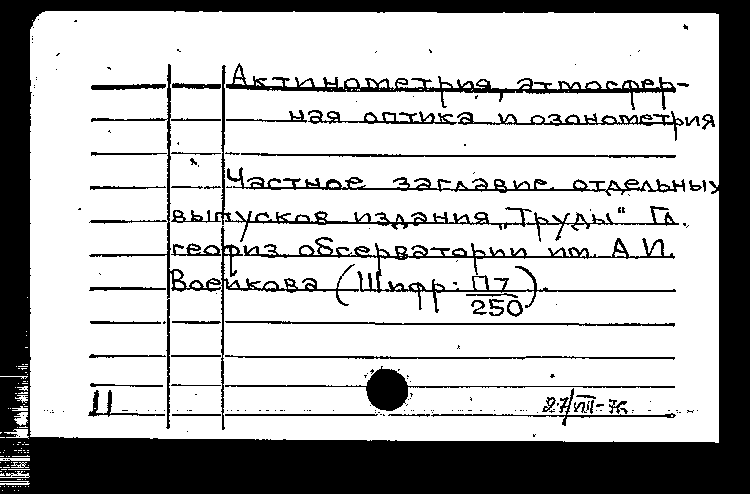 Актинометрия, атмосфер-
ная оптика и озонометрия
Частное заглавие отдельных
выпусков издания „Труды“ Гл.
геофиз. обсерватории им. А.И.
Воейкова (Шифр: П7/250).
11
27/VIII-76